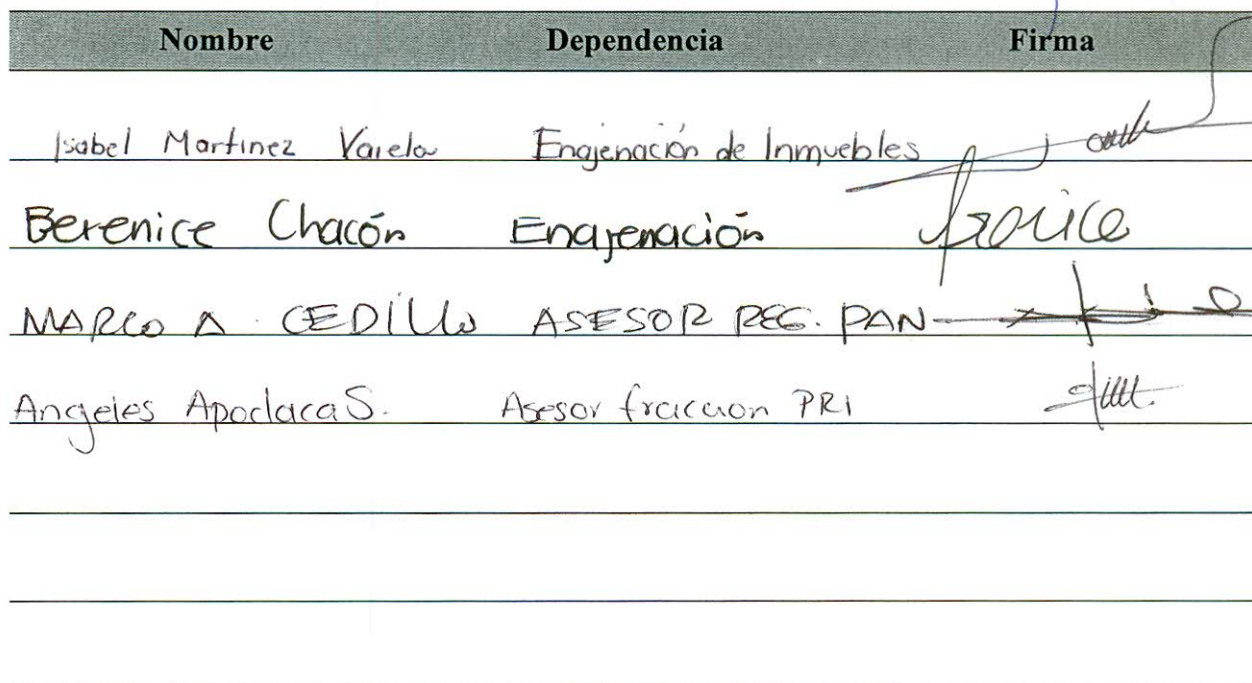 Nombre Dependencia Firma
Isabel Martinez Varela Enajenación de Inmuebles
Berenice Chacón Enajenación
MARCO A. CEDILLO ASESOR REG. PAN
Angeles Apodaca S. Asesor fraccion PRI